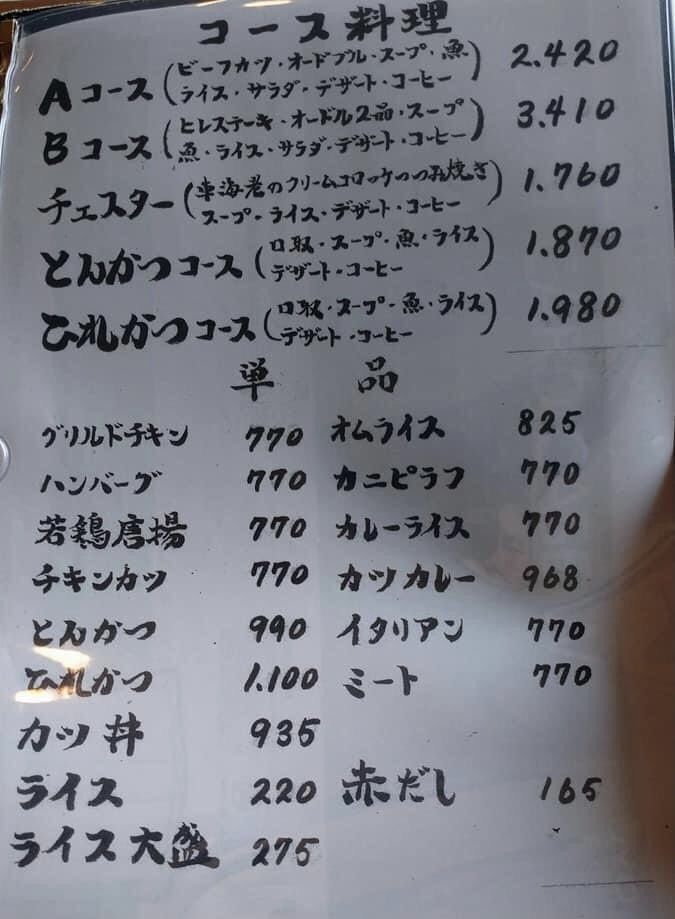 コース料理
Aコース(ビーフカツ・オードブル・スープ・魚 2.420
ライス・サラダ・デザート・コーヒー)
Bコース(ヒレステーキ・オードル2品・スープ 3.410
魚・ライス・サラダ・デザート・コーヒー)
チェスター(車海老のクリームコロッケつつみ焼き 1.760
スープ・ライス・デザート・コーヒー)
とんかつコース(口取・スープ・魚・ライス 1.870
デザート・コーヒー)
ひれかつコース(口取・スープ・魚・ライス 1.980
デザート・コーヒー)
単品
グリルドチキン 770 オムライス 825
ハンバーグ 770 カニピラフ 770
若鶏唐揚 770 カレーライス 770
チキンカツ 770 カツカレー 968
とんかつ 990 イタリアン 770
ひれかつ 1.100 ミート 770
カツ丼 935
ライス 220 赤だし 165
ライス大盛 275